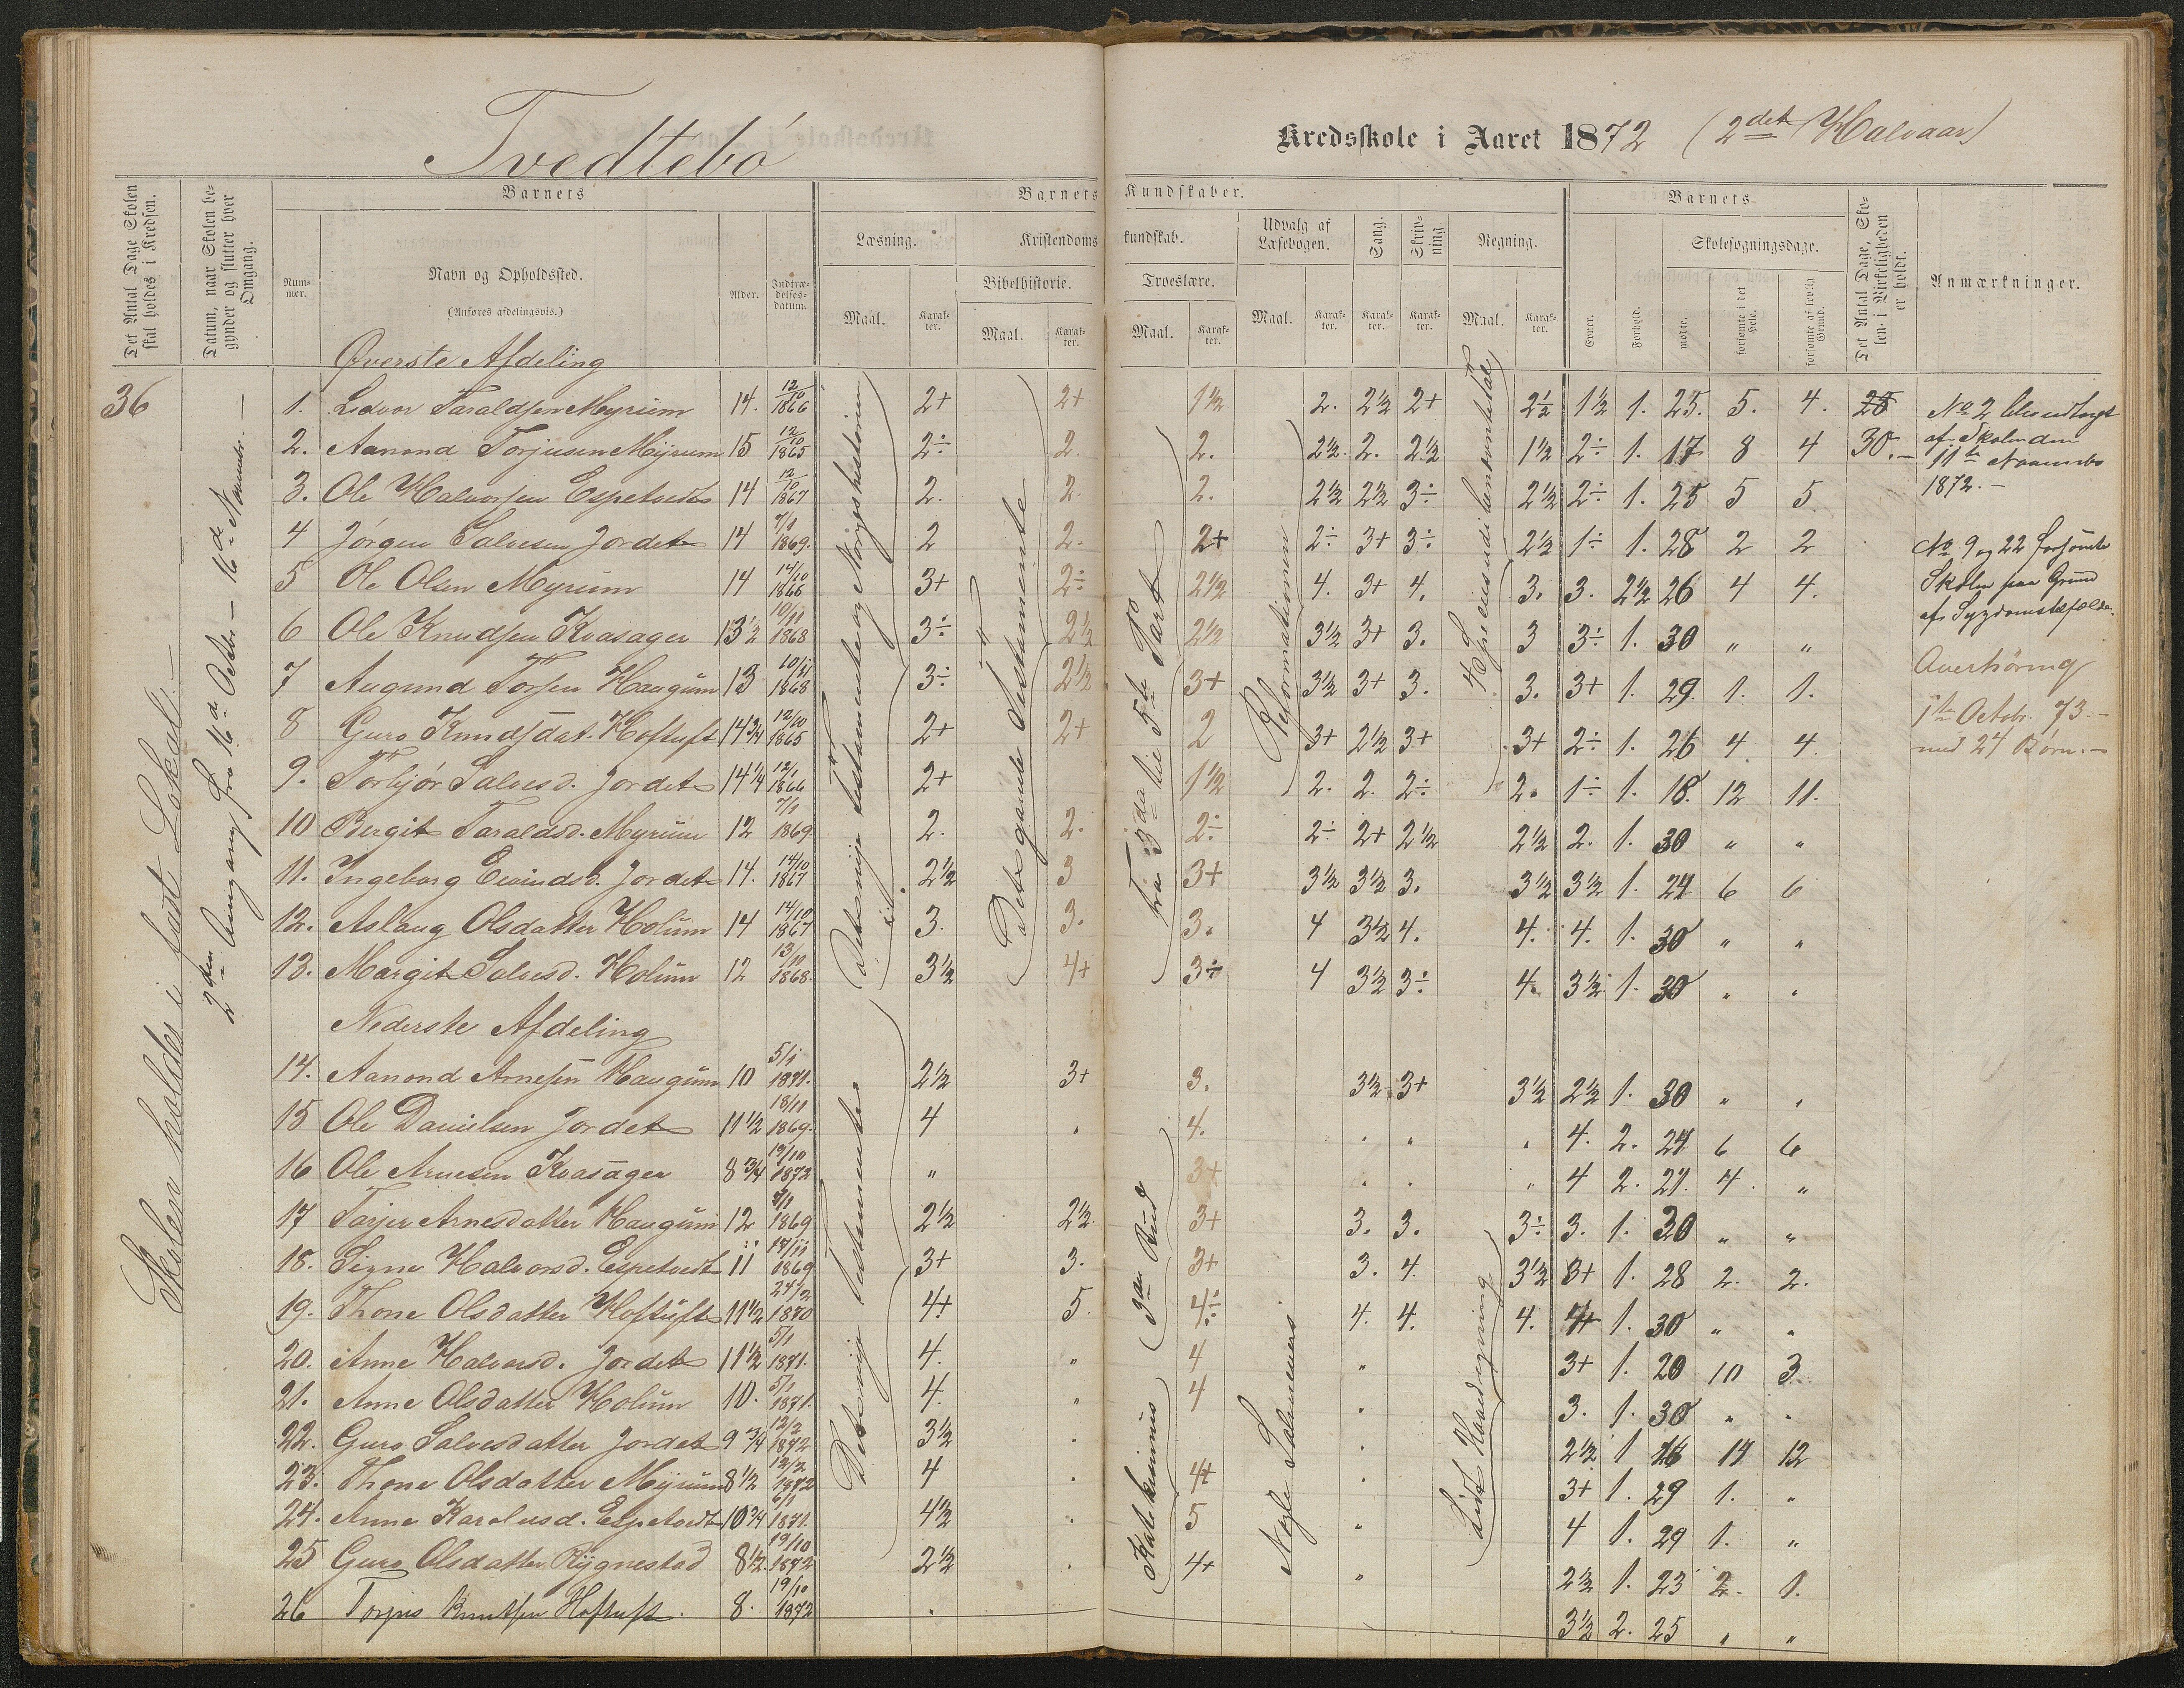 Tvedtebø
Kredsskole i Aaret 1872 (2det Halvaar)
Det Antal Dage Skolen skal holdes i Kredsen.
Datum, naar Skolen begynder og slutter hver Omgang.
Barnets
Barnets Kundskaber.
Barnets
Det Antal Dage, Skolen i Virkeligheden er holdt.
Anmærkninger.
Nummer.
Navn og Opholdssted.
(Anføres afdelingsvis.)
Alder.
Indtrædelsesdatum.
Læsning.
Kristendomskundskab.
Udvalg af Læsebogen.
Sang.
Skrivning
Regning.
Skolesøgningsdage.
Bibelhistorie.
Troeslære.
Maal. Karakter. Maal. Karakter. Maal. Karakter. Maal. Karakter. Karakter. Karakter. Maal. Karakter.
Evner. Forhold. mødte. forsømte i det Hele. forsømte af lovlig Grund.
36
Skolen holdes i fast Lokal.
2den Omgang fra 16de Octbr. – 16de Novembr. –
Øverste Afdeling
1. Ledvor Taraldsen Myrum 14. 12/10 1866 2+ 2+ 1½ 2. 2½ 2+ 2½ 1½ 1. 25. 5. 4.
2. Aanond Torjusen Myrum 15 12/10 1865 2÷ 2. 2. 2½ 2. 2½ 1½ 2÷ 1. 17 8 4 30.
3. Ole Halvorsen Espetvedt 14 12/10 1867 2. 2. 2. 2½ 2½ 3÷ 2½ 2÷ 1. 25 5 5.
4 Jørgen Salvesen Jordet 14 7/1 1869. 2 2. 2+ 2÷ 3+ 3÷ 2½ 1÷ 1. 28 2 2
5 Ole Olsen Myrum 14 14/10 1866 3+ 2÷ 2½ 4. 3+ 4. 3. 3. 2½ 26 4 4.
6 Ole Knudsen Kvasager 13½ 10/11 1868 3÷ 2½ 2½ 3½ 3+ 3. 3 3÷ 1. 30 " "
7 Augund Torsen Haugum 13 10/11 1868 3÷ 2½ 3+ 3½ 3+ 3. 3. 3+ 1. 29. 1. 1.
8 Guro Knudsdat. Hoftuft 14¾ 12/10 1865 2+ 2+ 2 3+ 2½ 3+ 3+ 2÷ 1. 26 4. 4.
9. Torbjør Salvesd. Jordet 14¼ 12/1 1866 2+ 1½ 2. 2. 2÷ 2. 1÷ 1. 18. 12 11.
10 Bergit Taraldsd. Myrum 12 7/1 1869. 2. 2. 2÷ 2÷ 2+ 2½ 2½ 2. 1. 30 " "
11. Ingeborg Eivindsd. Jordet 14. 14/10 1867 2½ 3 3+ 3½ 3½ 3. 3½ 3½ 1. 24 6 6
12. Aslaug Olsdatter Holum 14 14/10 1867 3. 3. 3. 4 3½ 4. 4. 4. 1. 30 " "
13. Margit Salvesd. Holum 12 13/11 1868. 3½ 4+ 3÷ 4 3½ 3÷ 4. 3½ 1. 30 " "
Nederste Afdeling
14. Aanond Arnesen Haugum 10 5/1 1871. 2½ 3+ 3. 3½ 3+ 3½ 2½ 1. 30 " "
15 Ole Danielsen Jordet 11½ 18/11 1869. 4 " 4. " " " 4. 2. 24 6 6
16 Ole Arnesen Kvasager 8¾ 19/10 1872 " 3+ " " " 4 2. 21. 4. "
17 Tarjer Arnesdatter Haugum 12 1869 2½ 2½. 3+ 3. 3. 3÷ 3. 1. 30 " "
18. Signe Halvorsd. Espetvedt 11 18/11 1869 3+ 3. 3+ 3. 4. 3½ 3+ 1. 28 2. 2.
19. Thone Olsdatter Hoftuft 11½ 24/2 1870 4+ 5. 4÷ 4. 4. 4. 4+ 1. 30 " "
20. Anne Halvorsd. Jordet 11½ 5/1 1871. 4. " 4 " 3+ 1. 20 10 3
21. Anne Olsdatter Holum 10. 5/1 1871. 4. " 4 " 3. 1. 30 " "
22. Guro Salvesdatter Jordet 9¾ 12/2 1872 3½ " " 2½ 1 16 14 12
23. Thone Olsdatter Myrum 8½ 12/2 1872 4 " 4+ " 3+ 1. 29 1. "
24. Anne Karolusd. Espetvedt 10¾ 6/1 1871. 4½ " 5 " 4 1. 29 1. "
25 Guro Olsdatter Rygnestad 8½ 19/10 1872 2½ " 4+ " 2½ 1. 23 2. 1.
26 Torjus Knutsen Hoftuft 8. 19/10 1872 " 3½ 2. 25 " "
Det nye Testamente og Norges historie
Det gamle Testamente
Fra 3die til 5te Part
Reformationen
Det nye Testamente
3die Bud
Katekismus
Nogle Salmevers
Lidt Hovedregning
No 2 blev udtaget
af Skolen den
11te Novembr
1872. –
No 9 og 22 forsømte
Skolen paa Grund
af Sygdomstilfælde.
Overhøring
1te Octobr. 73. –
med 24 Børn. –